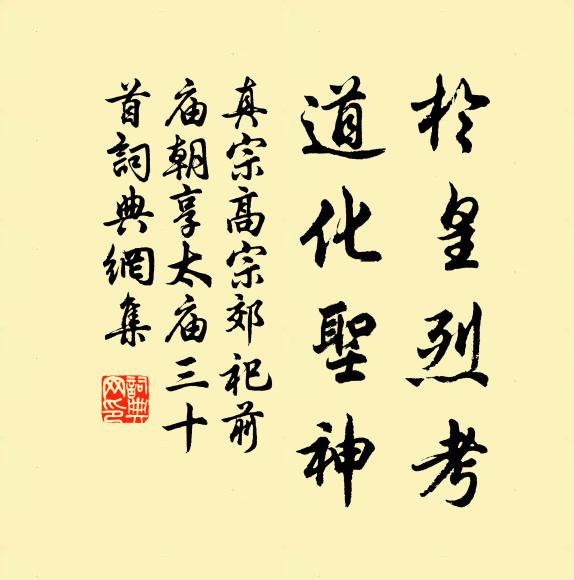 於皇烈考
道化聖神
真宗高宗郊祀前
庙朝享太庙三十
首詞典網集
詞典网印